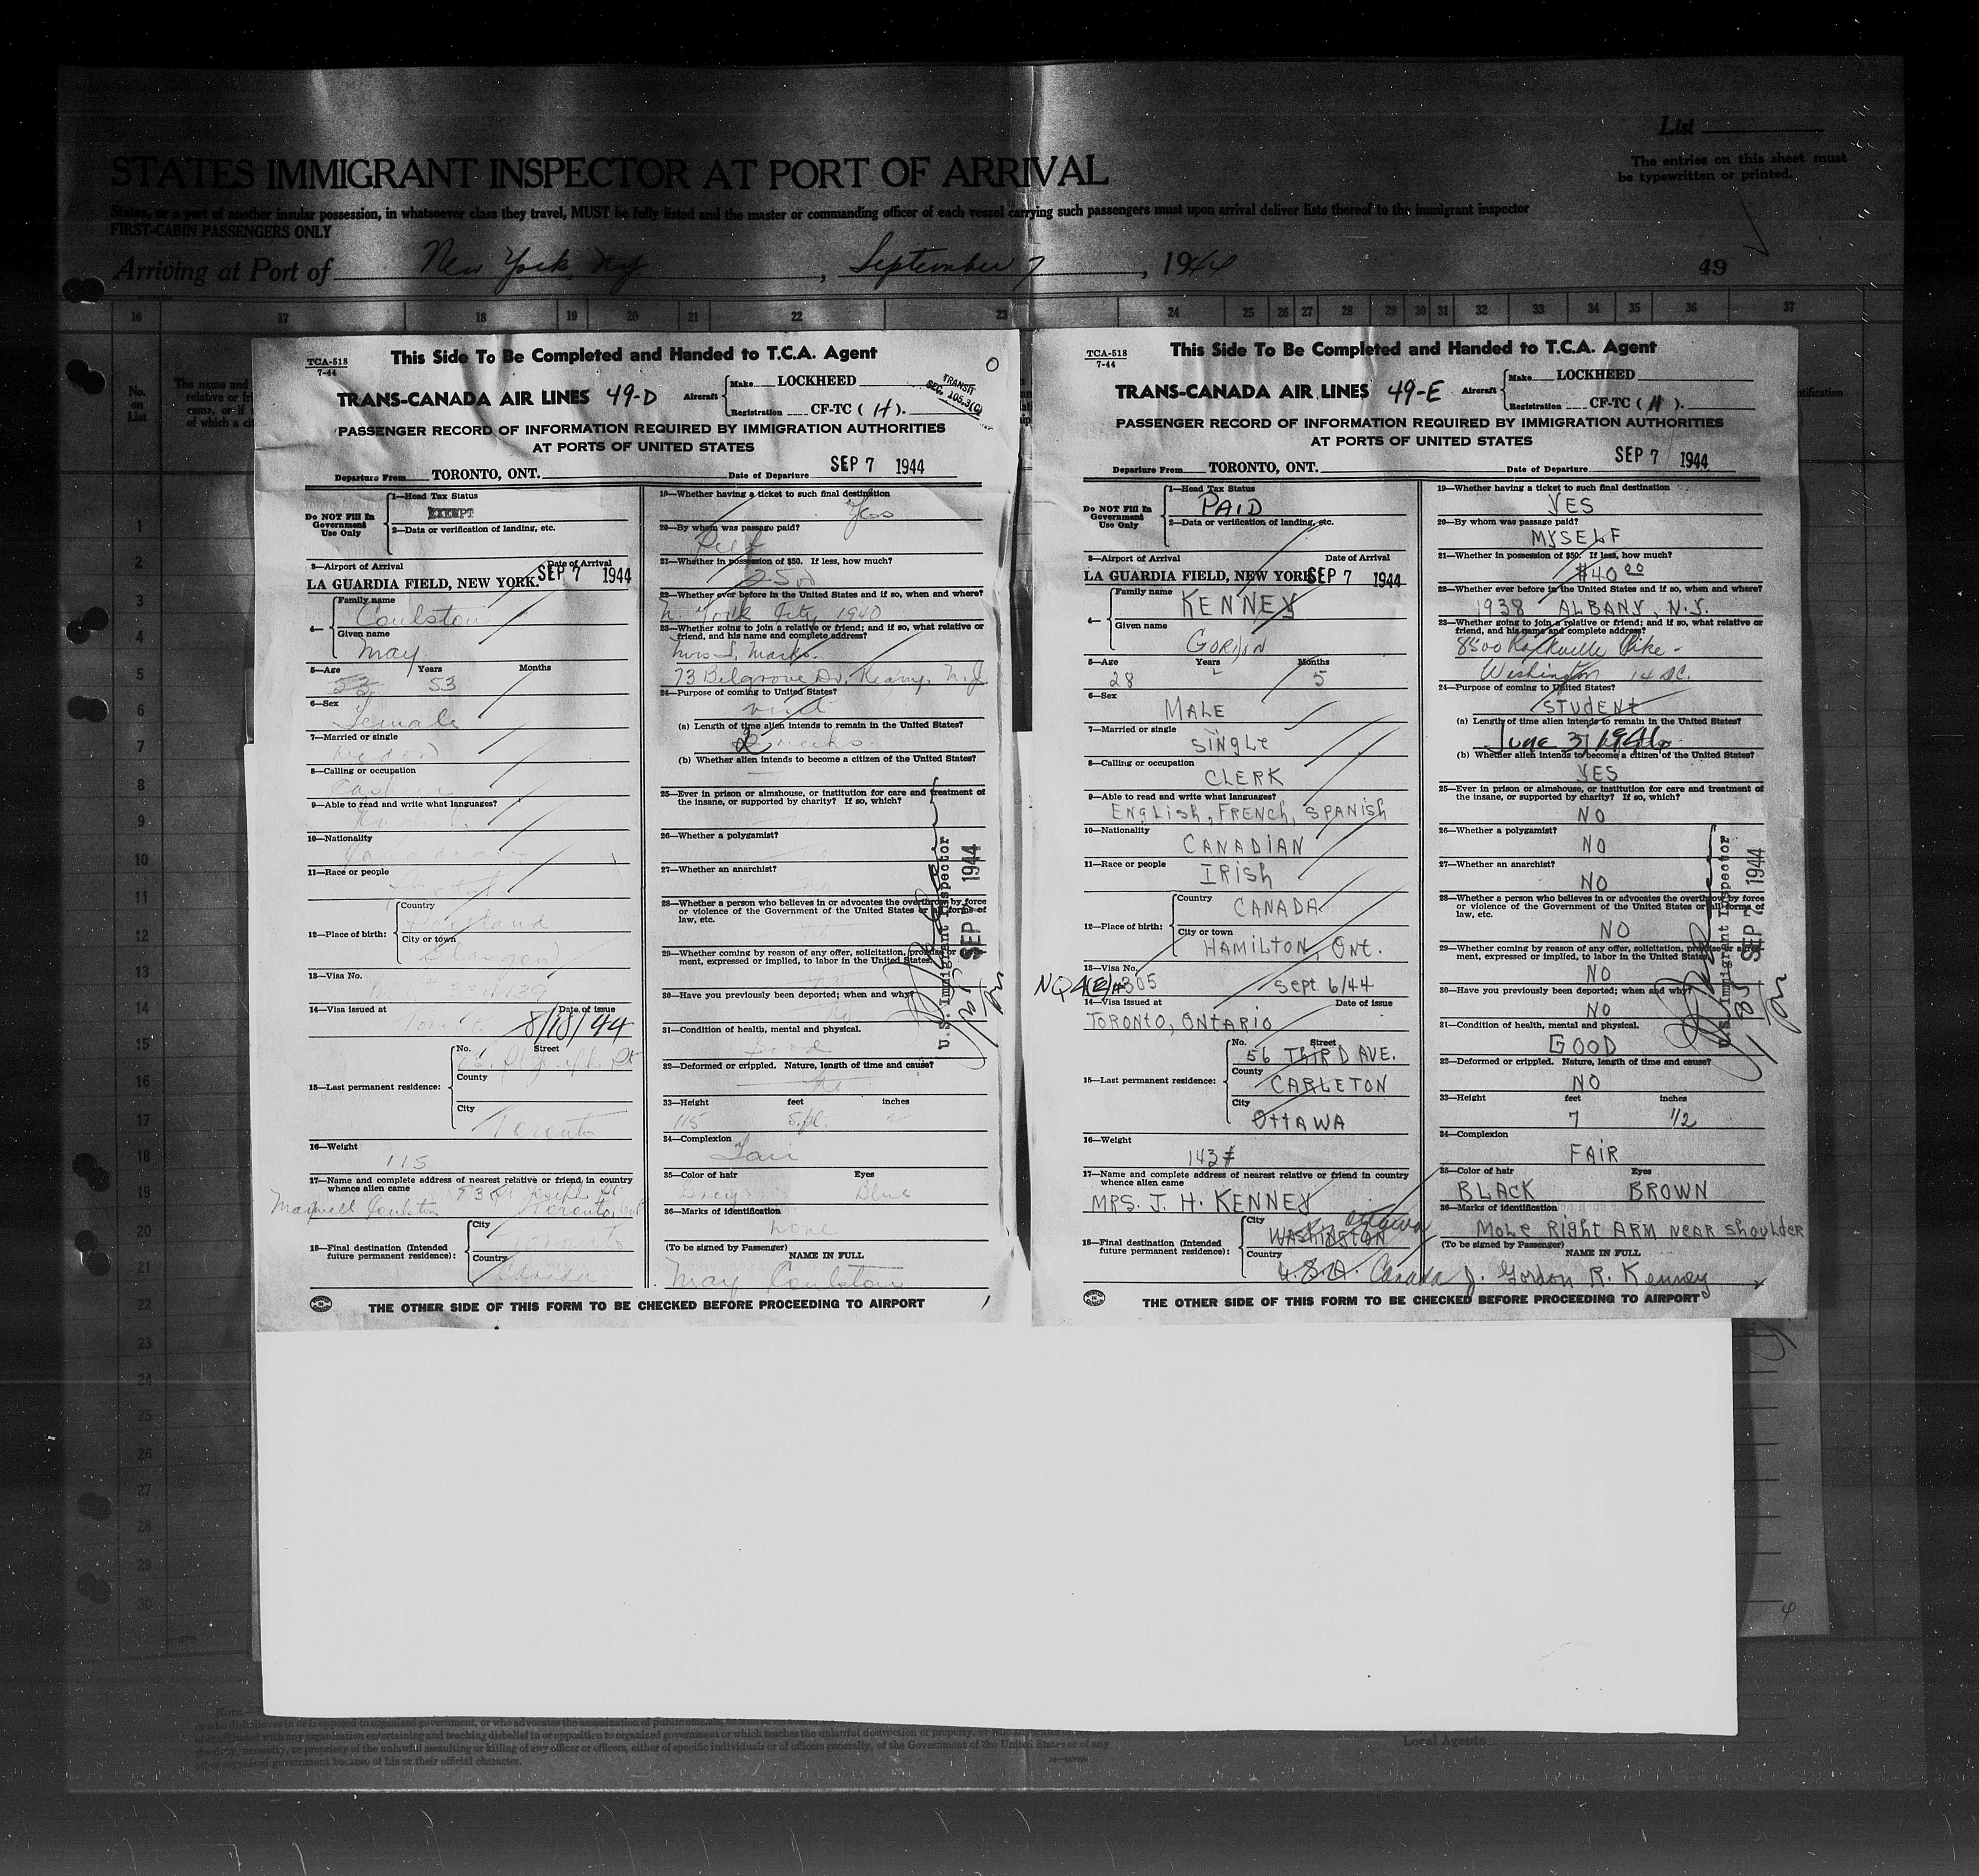 List
The entries on this sheet must
be typewritten or printed.
STATES IMMIGRANT INSPECTOR AT PORT OF ARRIVAL
States, or a part of another insular possession, in whatsoever class they travel, MUST be fully listed and the master or commanding officer of each vessel carrying such passengers must upon arrival deliver lists thereof to the immigrant inspector
FIRST-CABIN PASSENGERS ONLY
Arriving at Port of New York, NY, September 7, 1944
49
16 17 18 19 20 21 22 23 24 25 26 27 28 29 30 31 32 33 34 35 36 37
No.
on
List
1
2
3
4
5
6
7
8
9
10
11
12
13
14
15
16
17
18
19
20
21
22
23
24
25
26
27
28
29
30
TCA-518
7-44
This Side To Be Completed and Handed to T.C.A. Agent
TRANS-CANADA AIR LINES 49-D
Aircraft
Make LOCKHEED
Registration CF-TC ( H ).
TRANSIT
SEC. 105.3(C)
PASSENGER RECORD OF INFORMATION REQUIRED BY IMMIGRATION AUTHORITIES
AT PORTS OF UNITED STATES
Departure From TORONTO, ONT. Date of Departure SEP 7 1944
Do NOT Fill In
Government
Use Only
1—Head Tax Status
EXEMPT
2—Data or verification of landing, etc.
3—Airport of Arrival Date of Arrival
LA GUARDIA FIELD, NEW YORK. SEP 7 1944
4—
Family name
Coulston
Given name
May
5—Age Years Months
53
6—Sex
Female
7—Married or single
8—Calling or occupation
9—Able to read and write what languages?
10—Nationality
11—Race or people
12—Place of birth:
Country
Scotland
City or town
Glasgow
13—Visa No.
14—Visa issued at Date of issue
Toronto 8/18/44
15—Last permanent residence:
No. Street
County
City
Toronto
16—Weight
115
17—Name and complete address of nearest relative or friend in country
whence alien came
Maxwell Coulston
Toronto, Ont
18—Final destination (Intended
future permanent residence):
City
Toronto
Country
Canada
19—Whether having a ticket to such final destination
Yes
20—By whom was passage paid?
Self
21—Whether in possession of $50. If less, how much?
22—Whether ever before in the United States and if so, when and where?
N. York City, 1940
23—Whether going to join a relative or friend; and if so, what relative or
friend, and his name and complete address?
Mrs. S. Marks.
73 Belgrove Dr. Kearny, N.J.
24—Purpose of coming to United States?
visit
(a) Length of time alien intends to remain in the United States?
2 weeks
(b) Whether alien intends to become a citizen of the United States?
25—Ever in prison or almshouse, or institution for care and treatment of
the insane, or supported by charity? If so, which?
26—Whether a polygamist?
27—Whether an anarchist?
28—Whether a person who believes in or advocates the overthrow by force
or violence of the Government of the United States or all forms of
law, etc.
29—Whether coming by reason of any offer, solicitation, promise or agree-
ment, expressed or implied, to labor in the United States.
30—Have you previously been deported; when and why?
31—Condition of health, mental and physical.
Good
32—Deformed or crippled. Nature, length of time and cause?
No
33—Height feet inches
115 5 ft. 2
34—Complexion
Fair
35—Color of hair Eyes
Grey Blue
36—Marks of identification
none
(To be signed by Passenger) NAME IN FULL
May Coulston
U.S. Immigrant Inspector
SEP 7 1944
THE OTHER SIDE OF THIS FORM TO BE CHECKED BEFORE PROCEEDING TO AIRPORT
TCA-518
7-44
This Side To Be Completed and Handed to T.C.A. Agent
TRANS-CANADA AIR LINES 49-E
Aircraft
Make LOCKHEED
Registration CF-TC ( H ).
PASSENGER RECORD OF INFORMATION REQUIRED BY IMMIGRATION AUTHORITIES
AT PORTS OF UNITED STATES
Departure From TORONTO, ONT. Date of Departure SEP 7 1944
Do NOT Fill In
Government
Use Only
1—Head Tax Status
PAID
2—Data or verification of landing, etc.
3—Airport of Arrival Date of Arrival
LA GUARDIA FIELD, NEW YORK. SEP 7 1944
4—
Family name
KENNEY
Given name
GORDON
5—Age Years Months
28 5
6—Sex
MALE
7—Married or single
SINGLE
8—Calling or occupation
CLERK
9—Able to read and write what languages?
ENGLISH, FRENCH, SPANISH
10—Nationality
CANADIAN
11—Race or people
IRISH
12—Place of birth:
Country
CANADA
City or town
HAMILTON, ONT.
13—Visa No.
NQ 4(E)#305 Sept 6/44
14—Visa issued at Date of issue
TORONTO, ONTARIO
15—Last permanent residence:
No. Street
56 THIRD AVE.
County
CARLETON
City
OTTAWA
16—Weight
143#
17—Name and complete address of nearest relative or friend in country
whence alien came
MRS. J. H. KENNEY
18—Final destination (Intended
future permanent residence):
City
WASHINGTON Ottawa
Country
U.S.A. Canada
19—Whether having a ticket to such final destination
YES
20—By whom was passage paid?
MYSELF
21—Whether in possession of $50. If less, how much?
$40.00
22—Whether ever before in the United States and if so, when and where?
1938 ALBANY, N.Y.
23—Whether going to join a relative or friend; and if so, what relative or
friend, and his name and complete address?
8500 Rockville Pike -
Washington 14 DC.
24—Purpose of coming to United States?
STUDENT
(a) Length of time alien intends to remain in the United States?
June 3, 1946
(b) Whether alien intends to become a citizen of the United States?
YES
25—Ever in prison or almshouse, or institution for care and treatment of
the insane, or supported by charity? If so, which?
NO
26—Whether a polygamist?
NO
27—Whether an anarchist?
NO
28—Whether a person who believes in or advocates the overthrow by force
or violence of the Government of the United States or all forms of
law, etc.
NO
29—Whether coming by reason of any offer, solicitation, promise or agree-
ment, expressed or implied, to labor in the United States.
NO
30—Have you previously been deported; when and why?
NO
31—Condition of health, mental and physical.
GOOD
32—Deformed or crippled. Nature, length of time and cause?
NO
33—Height feet inches
7 1/2
34—Complexion
FAIR
35—Color of hair Eyes
BLACK BROWN
36—Marks of identification
MOLE RIGHT ARM NEAR SHOULDER
(To be signed by Passenger) NAME IN FULL
J. Gordon R. Kenney
U.S. Immigrant Inspector
SEP 7 1944
THE OTHER SIDE OF THIS FORM TO BE CHECKED BEFORE PROCEEDING TO AIRPORT
Local Agents